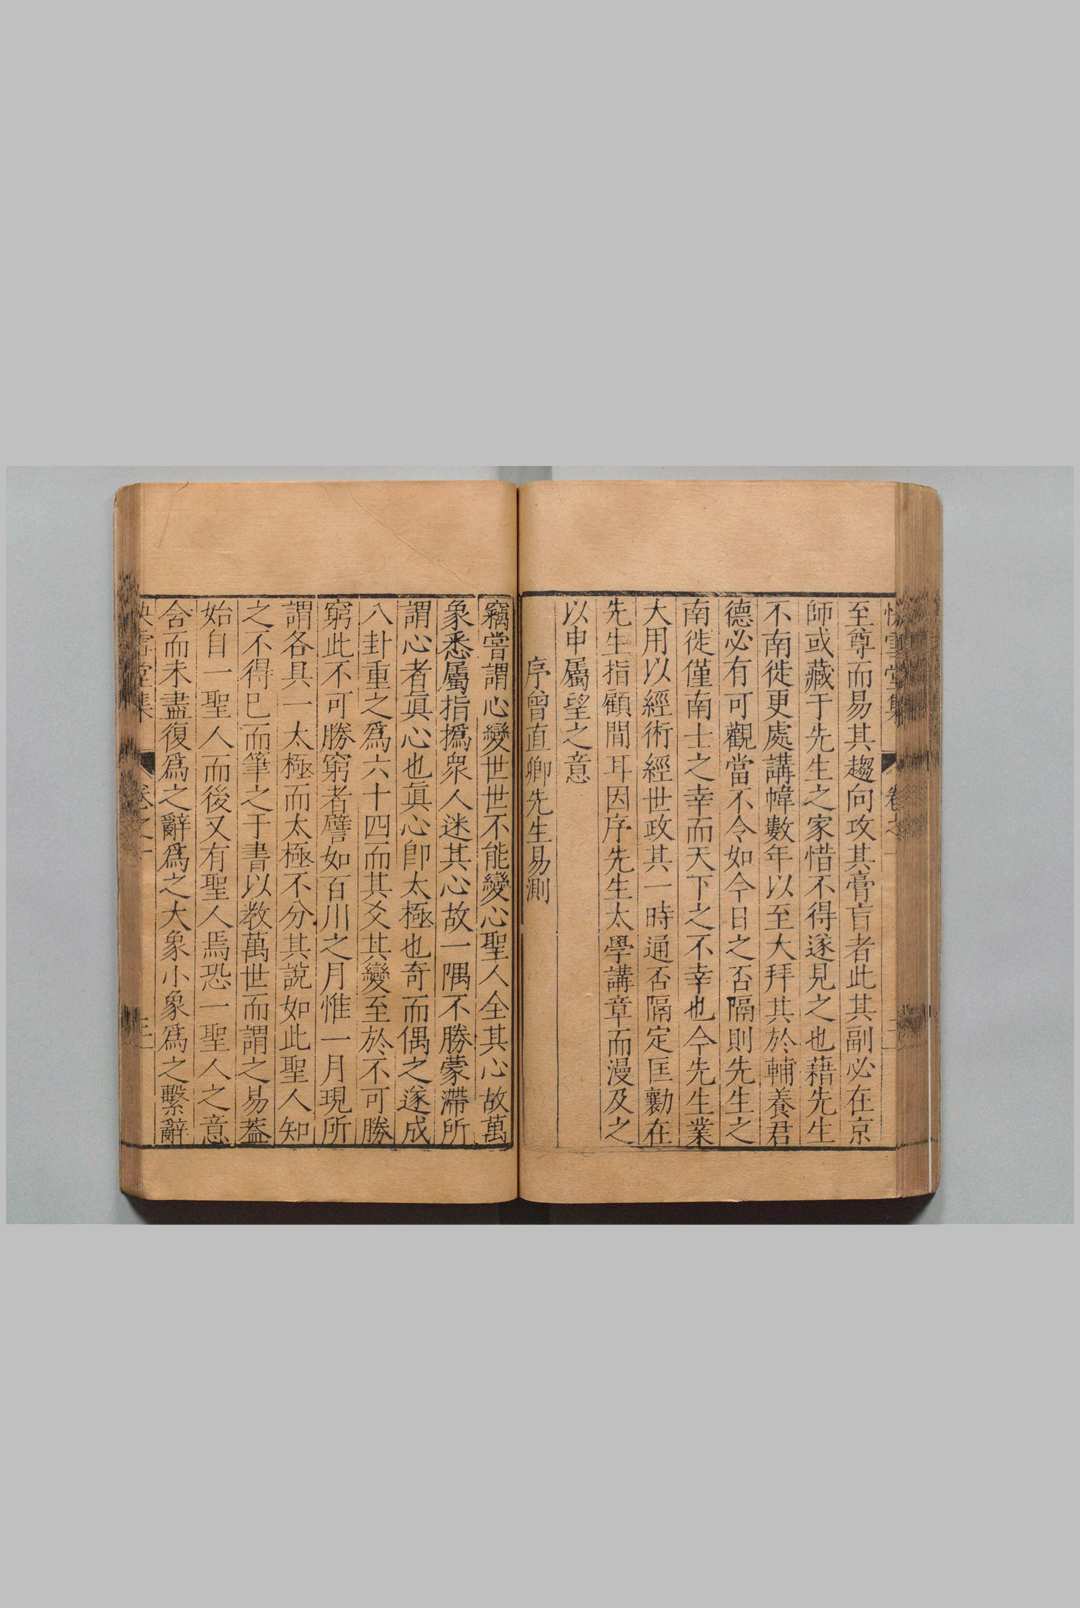 快雪堂集 卷之一
至尊而易其趨向攻其膏肓者此其副必在京
師或藏于先生之家惜不得遂見之也藉先生
不南徙更處講幃數年以至大拜其於輔養君
德必有可觀當不令如今日之否隔則先生之
南徙僅南士之幸而天下之不幸也今先生業
大用以經術經世政其一時通否隔定匡勷在
先生指顧間耳因序先生太學講章而漫及之
以申屬望之意
序曾直卿先生易測
竊嘗謂心變世世不能變心聖人全其心故萬
象悉屬指撝衆人迷其心故一隅不勝蒙滯所
謂心者眞心也眞心卽太極也奇而偶之遂成
八卦重之爲六十四而其爻其變至於不可勝
窮此不可勝窮者譬如百川之月惟一月現所
謂各具一太極而太極不分其說如此聖人知
之不得已而筆之于書以教萬世而謂之易蓋
始自一聖人而後又有聖人焉恐一聖人之意
含而未盡復爲之辭爲之大象小象爲之繫辭
快雪堂集 卷之一 三